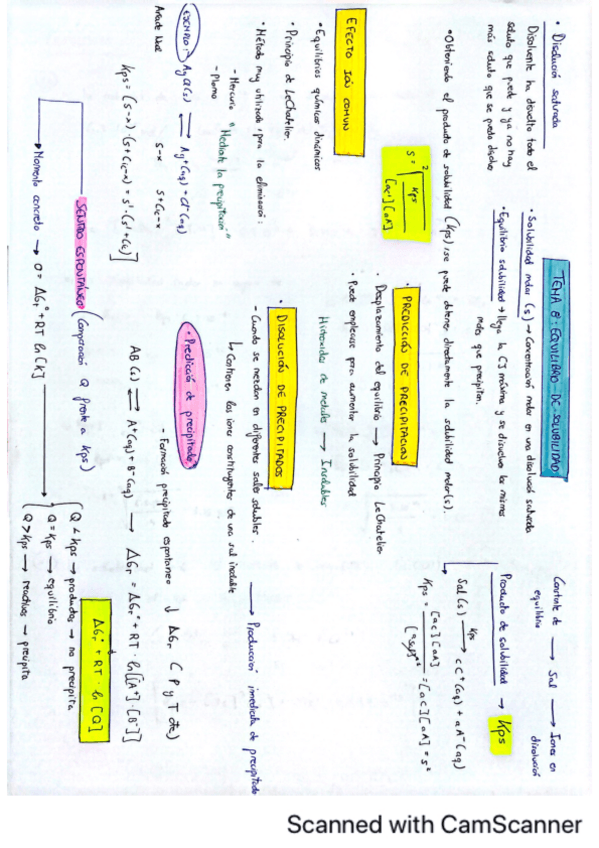 TEMA 8: EQUILIBRIO DE SOLUBILIDAD
• Disolución saturada
Disolvente ha disuelto todo el
soluto que puede y ya no hay
más soluto que se pueda disolver
• Solubilidad molar (s) → Concentración molar en una disolución saturada
• Equilibrio solubilidad → llega la C] máxima y se disuelven los mismos
moles que precipitan.
Constante de equilibrio → Sal → Iones en disolución
Producto de solubilidad → Kps
Sal (s) Kps→ cC⁺(aq) + aA⁻(aq)
Kps = [aC][aA] = [aC][aA] = s²
• Obteniendo el producto de solubilidad (Kps) se puede obtener directamente la solubilidad molar (s).
s = ²√ Kps
[ac][aA]
EFECTO IÓN COMÚN
• Equilibrios químicos dinámicos
• Principio de LeChatelier.
• Método muy utilizado para la eliminación.
- Mercurio
- Plomo
"Mediante la precipitación"
EJEMPLO: AgCl(s) ⇌ Ag⁺(aq) + Cl⁻(aq)
s-x s+Cc-x
Kps = (s-x)·(s+Cc-x) = s'·(s'+Cc)]
• PREDICCIÓN DE PRECIPITACIÓN
• Desplazamiento del equilibrio → Principio LeChatelier
• Puede emplearse para aumentar la solubilidad
Hidróxidos de metales → Insolubles
• DISOLUCIÓN DE PRECIPITADOS
- Cuando se mezclan en diferentes sales solubles. → Producción inmediata de precipitado
↳ Contienen los iones constituyentes de una sal insoluble
• Predicción de precipitado
- Formación precipitado espontáneo ↓ ΔGr (P y T cte)
AB (s) ⇌ A⁺(aq) + B⁻(aq) → ΔGr = ΔGr° + RT · ln[[A⁺]·[B⁻]]
ΔGr° + RT · ln [Q]
SENTIDO ESPONTÁNEO (Comparación Q frente a Kps)
Momento concreto → 0 = ΔGr° + RT ln[K]
Q < Kps → productos → no precipita
Q = Kps → equilibrio
Q > Kps → reactivos → precipita
Scanned with CamScanner